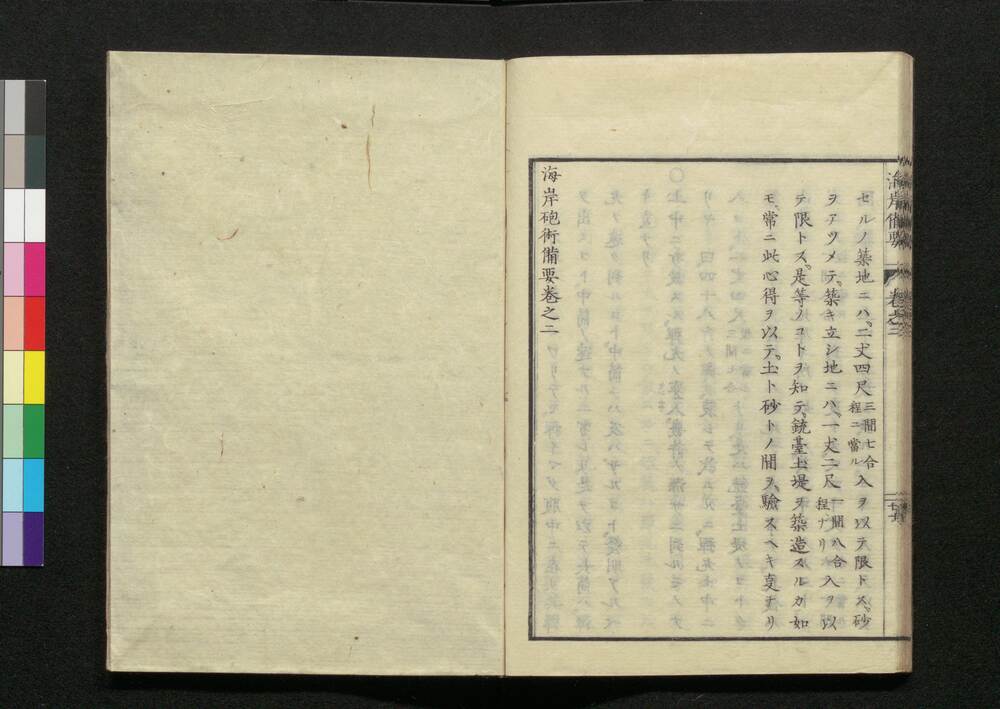 セルノ築地ニハ、二丈四尺三間七合程ニ當ル入ヲ以テ限トス。砂
ヲアツメテ、築キ立シ地ニハ、一丈二尺一間八合程ナリ入ヲ以
テ限トス。是等ノコトヲ知テ、銃臺土堤ヲ築造スルガ如
モ、常ニ此心得ヲ以テ、土ト砂トノ間ヲ、驗スヘキ支ナリ
海岸砲術備要卷之二
海岸備要
卷之二